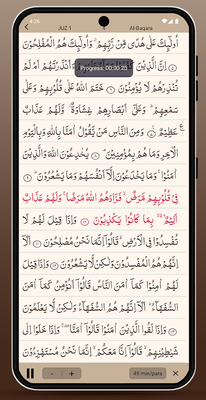 4:26
JUZ 1
4
Al-Baqara
اُولٰٓئِكَ عَلٰى هُدًى مِّنْ رَّبِّهِمْ وَاُولٰٓئِكَ هُمُ الْمُفْلِحُوْنَ
اِنَّ الَّذِيْنَ ءَاَنْذَرْتَهُمْ اَمْ لَمْ
Progress: 00:00:25
تُنْذِرْهُمْ لَا يُؤْمِنُوْنَ خَتَمَ اللّٰهُ عَلٰى قُلُوْبِهِمْ وَعَلٰى
سَمْعِهِمْ وَعَلٰٓى اَبْصَارِهِمْ غِشَاوَةٌ وَّلَهُمْ عَذَابٌ
عَظِيْمٌ وَمِنَ النَّاسِ مَنْ يَّقُوْلُ اٰمَنَّا بِاللّٰهِ وَبِالْيَوْمِ
الْاٰخِرِ وَمَا هُمْ بِمُؤْمِنِيْنَ يُخٰدِعُوْنَ اللّٰهَ وَالَّذِيْنَ
اٰمَنُوْا وَمَا يَخْدَعُوْنَ اِلَّآ اَنْفُسَهُمْ وَمَا يَشْعُرُوْنَ
فِيْ قُلُوْبِهِمْ مَّرَضٌ فَزَادَهُمُ اللّٰهُ مَرَضًا وَلَهُمْ عَذَابٌ
اَلِيْمٌ بِمَا كَانُوْا يَكْذِبُوْنَ وَاِذَا قِيْلَ لَهُمْ لَا
تُفْسِدُوْا فِى الْاَرْضِ قَالُوْٓا اِنَّمَا نَحْنُ مُصْلِحُوْنَ اَلَآ
اِنَّهُمْ هُمُ الْمُفْسِدُوْنَ وَلٰكِنْ لَّا يَشْعُرُوْنَ وَاِذَا قِيْلَ
لَهُمْ اٰمِنُوْا كَمَآ اٰمَنَ النَّاسُ قَالُوْٓا اَنُؤْمِنُ كَمَآ اٰمَنَ
السُّفَهَآءُ اَلَآ اِنَّهُمْ هُمُ السُّفَهَآءُ وَلٰكِنْ لَّا يَعْلَمُوْنَ
وَاِذَا لَقُوا الَّذِيْنَ اٰمَنُوْا قَالُوْٓا اٰمَنَّا وَاِذَا خَلَوْا اِلٰى
شَيٰطِيْنِهِمْ قَالُوْٓا اِنَّا مَعَكُمْ اِنَّمَا نَحْنُ مُسْتَهْزِءُوْنَ
- + 45 min/para ×